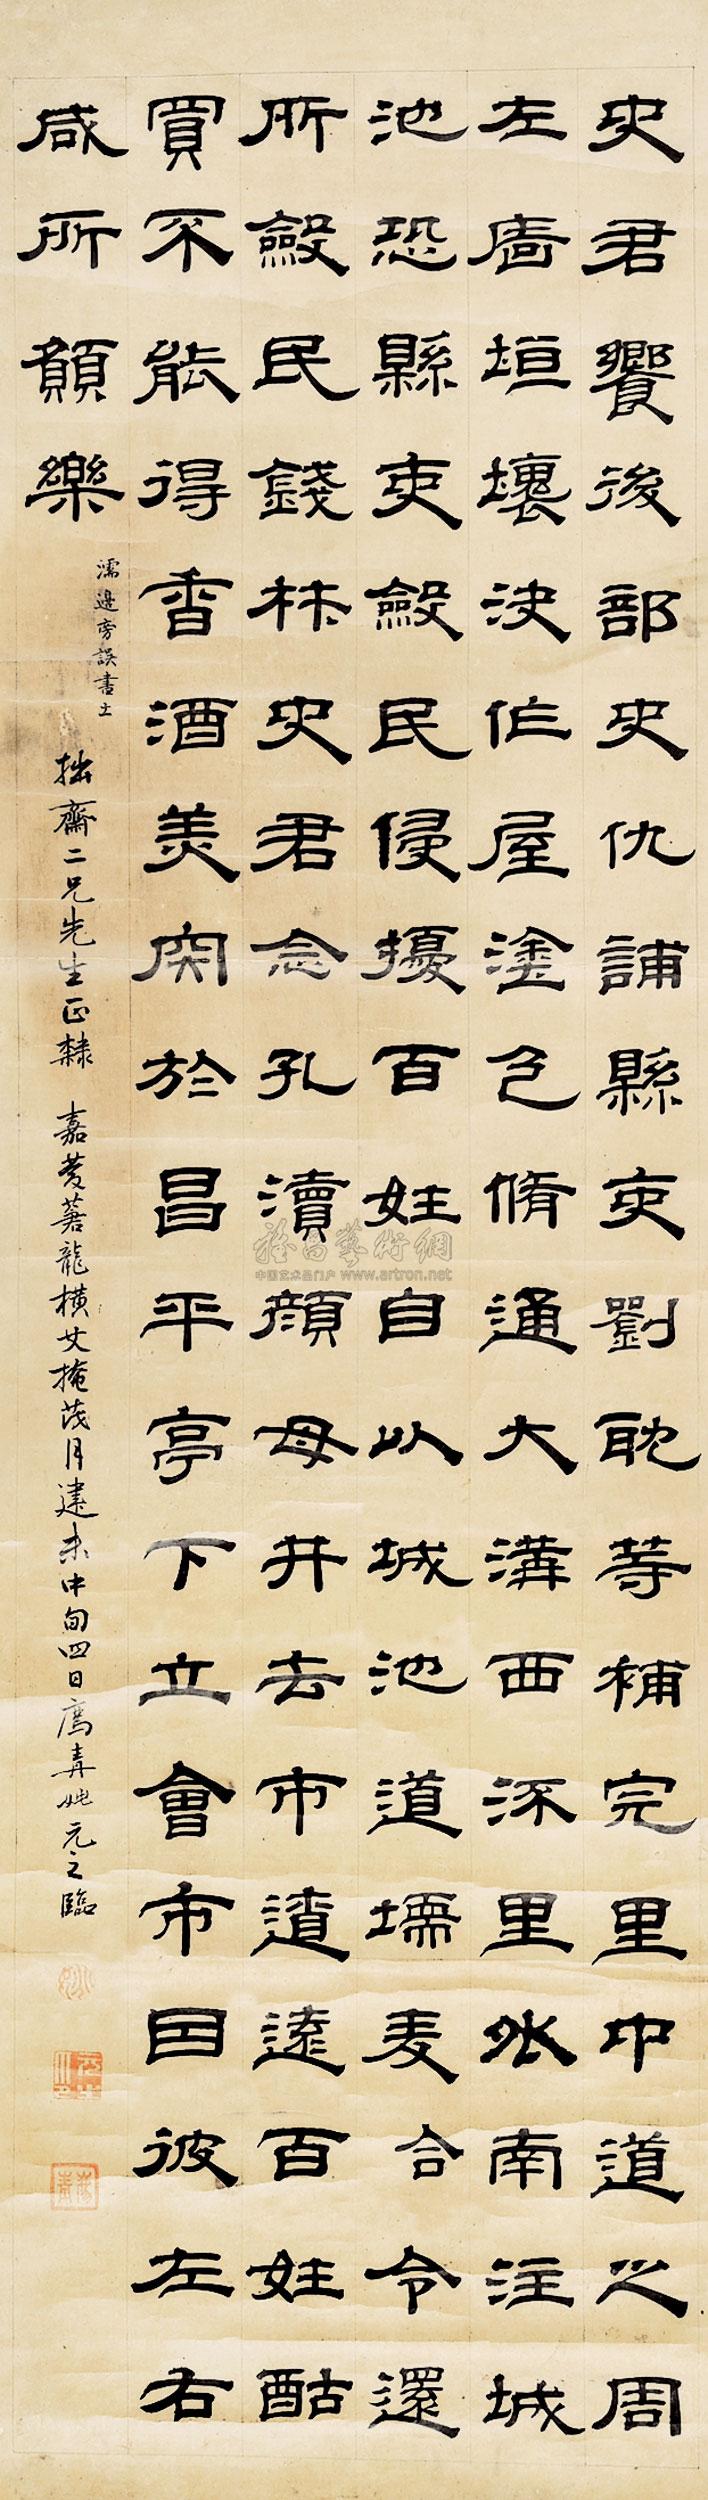 史君饗後部史仇誧縣吏劉耽等補完里中道之周
左廧垣壞決作屋塗色脩通大溝西流里外南注城
池恐縣吏斂民侵擾百姓自以城池道壖麦合令還
所斂民錢枺史君念孔瀆顏母井去市遼遠百姓酤
買不能得香酒美肉於昌平亭下立會市因彼左右
咸所願樂
濡邊旁誤書土
拙齋二兄先生正隸 嘉慶著龍橫艾掩茂月建未中旬四日廌青姚元之臨
中国艺术品门户 www.artron.net